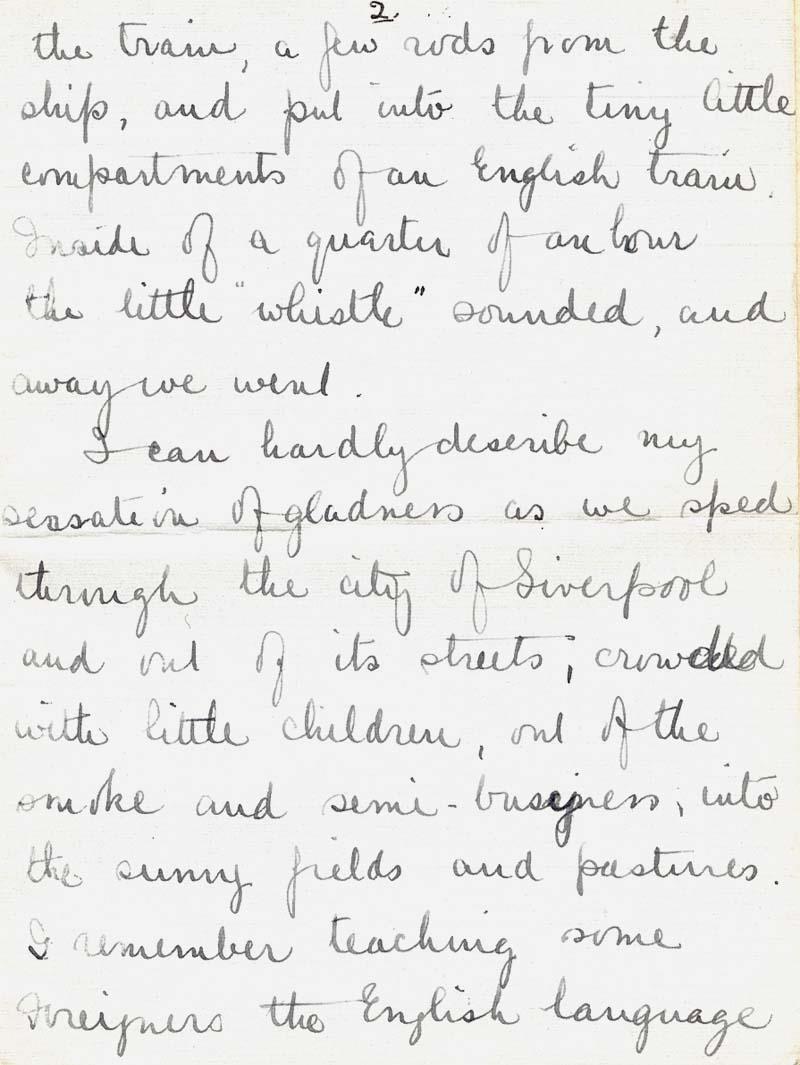 2.
the train, a few rods from the
ship, and put into the tiny little
compartments of an English train.
Inside of a quarter of an hour
the little "whistle" sounded, and
away we went.
I can hardly describe my
sensation of gladness as we sped
through the city of Liverpool
and out of its streets, crowded
with little children, out of the
smoke and semi-business, into
the sunny fields and pastures.
I remember teaching some
Foreigners the English language